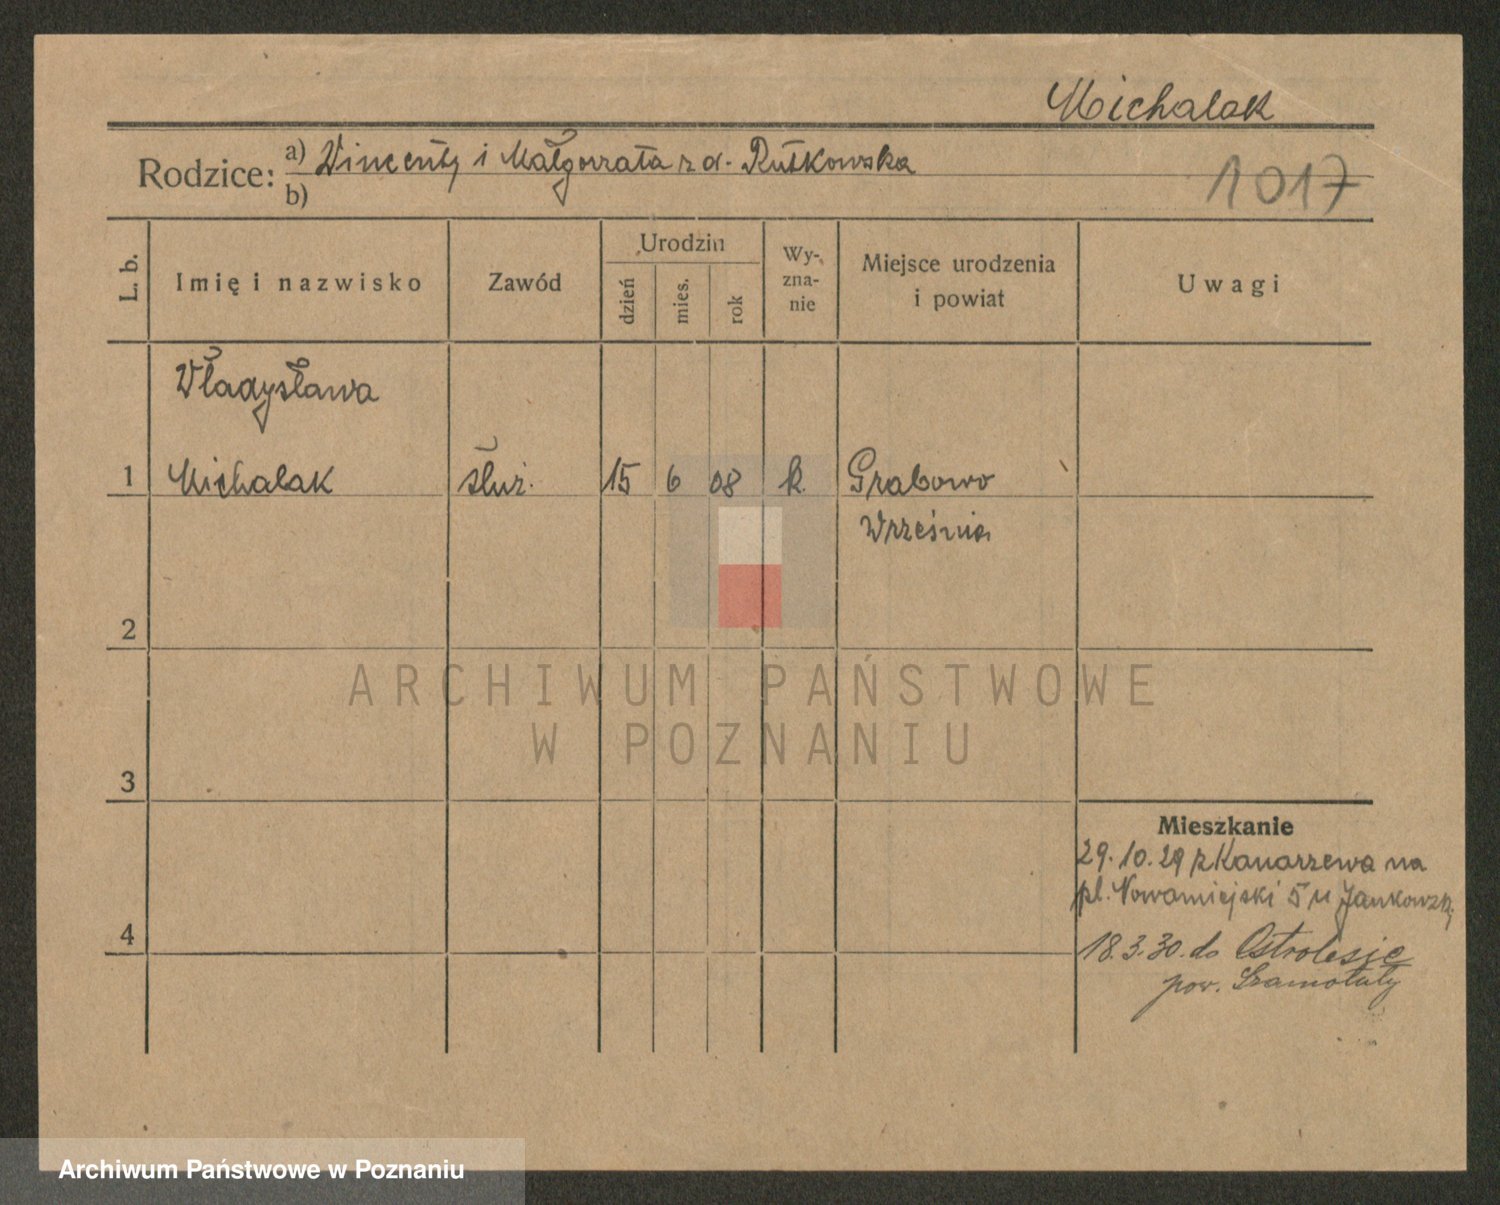 Michalak
Rodzice: a) Wincenty i Małgorzata z d. Rutkowska
b)
1017
L. b.
Imię i nazwisko
Zawód
Urodzin
dzień
mies.
rok
Wy-
zna-
nie
Miejsce urodzenia
i powiat
Uwagi
Władysława
1 Michalak służ. 15 6 08 k. Grabowo
Września
2
ARCHIWUM PAŃSTWOWE
W POZNANIU
3
Mieszkanie
29.10.29 z Kanarzewa na
pl. Nowomiejski 5 u Jankowsk.
4
18.3.30. do Ostrolesie
pow. Szamotuły
Archiwum Państwowe w Poznaniu